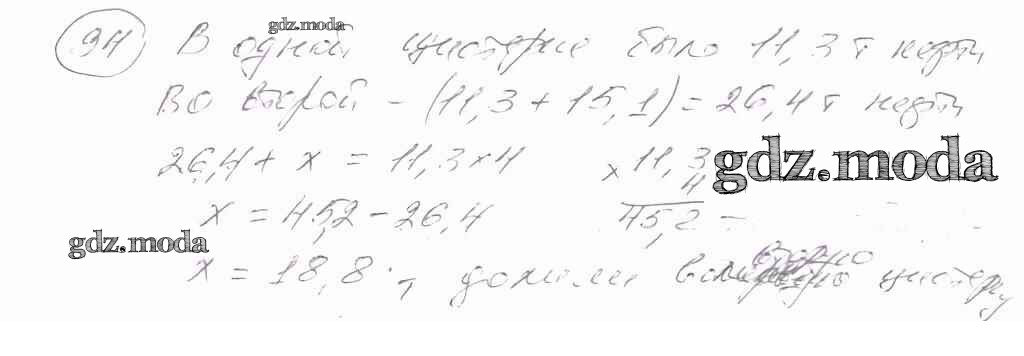 gdz.moda
94 В одной цистерне было 11,3 т нефти
Во второй - (11,3 + 15,1) = 26,4 т нефти
26,4 + x = 11,3 × 4
× 11,3
4
45,2
gdz.moda
x = 45,2 - 26,4
gdz.moda
x = 18,8 т долили во вторую цистерну